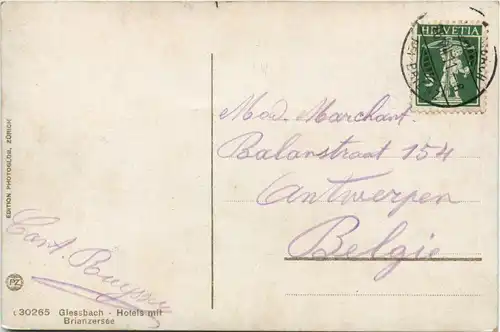 HELVETIA
Mad. Marchant.
Balanstraat 154
Antwerpen
België
EDITION PHOTOGLOB, ZÜRICH
Cont.
PZ
c 30265 Giessbach - Hotels mit
Brianzersee